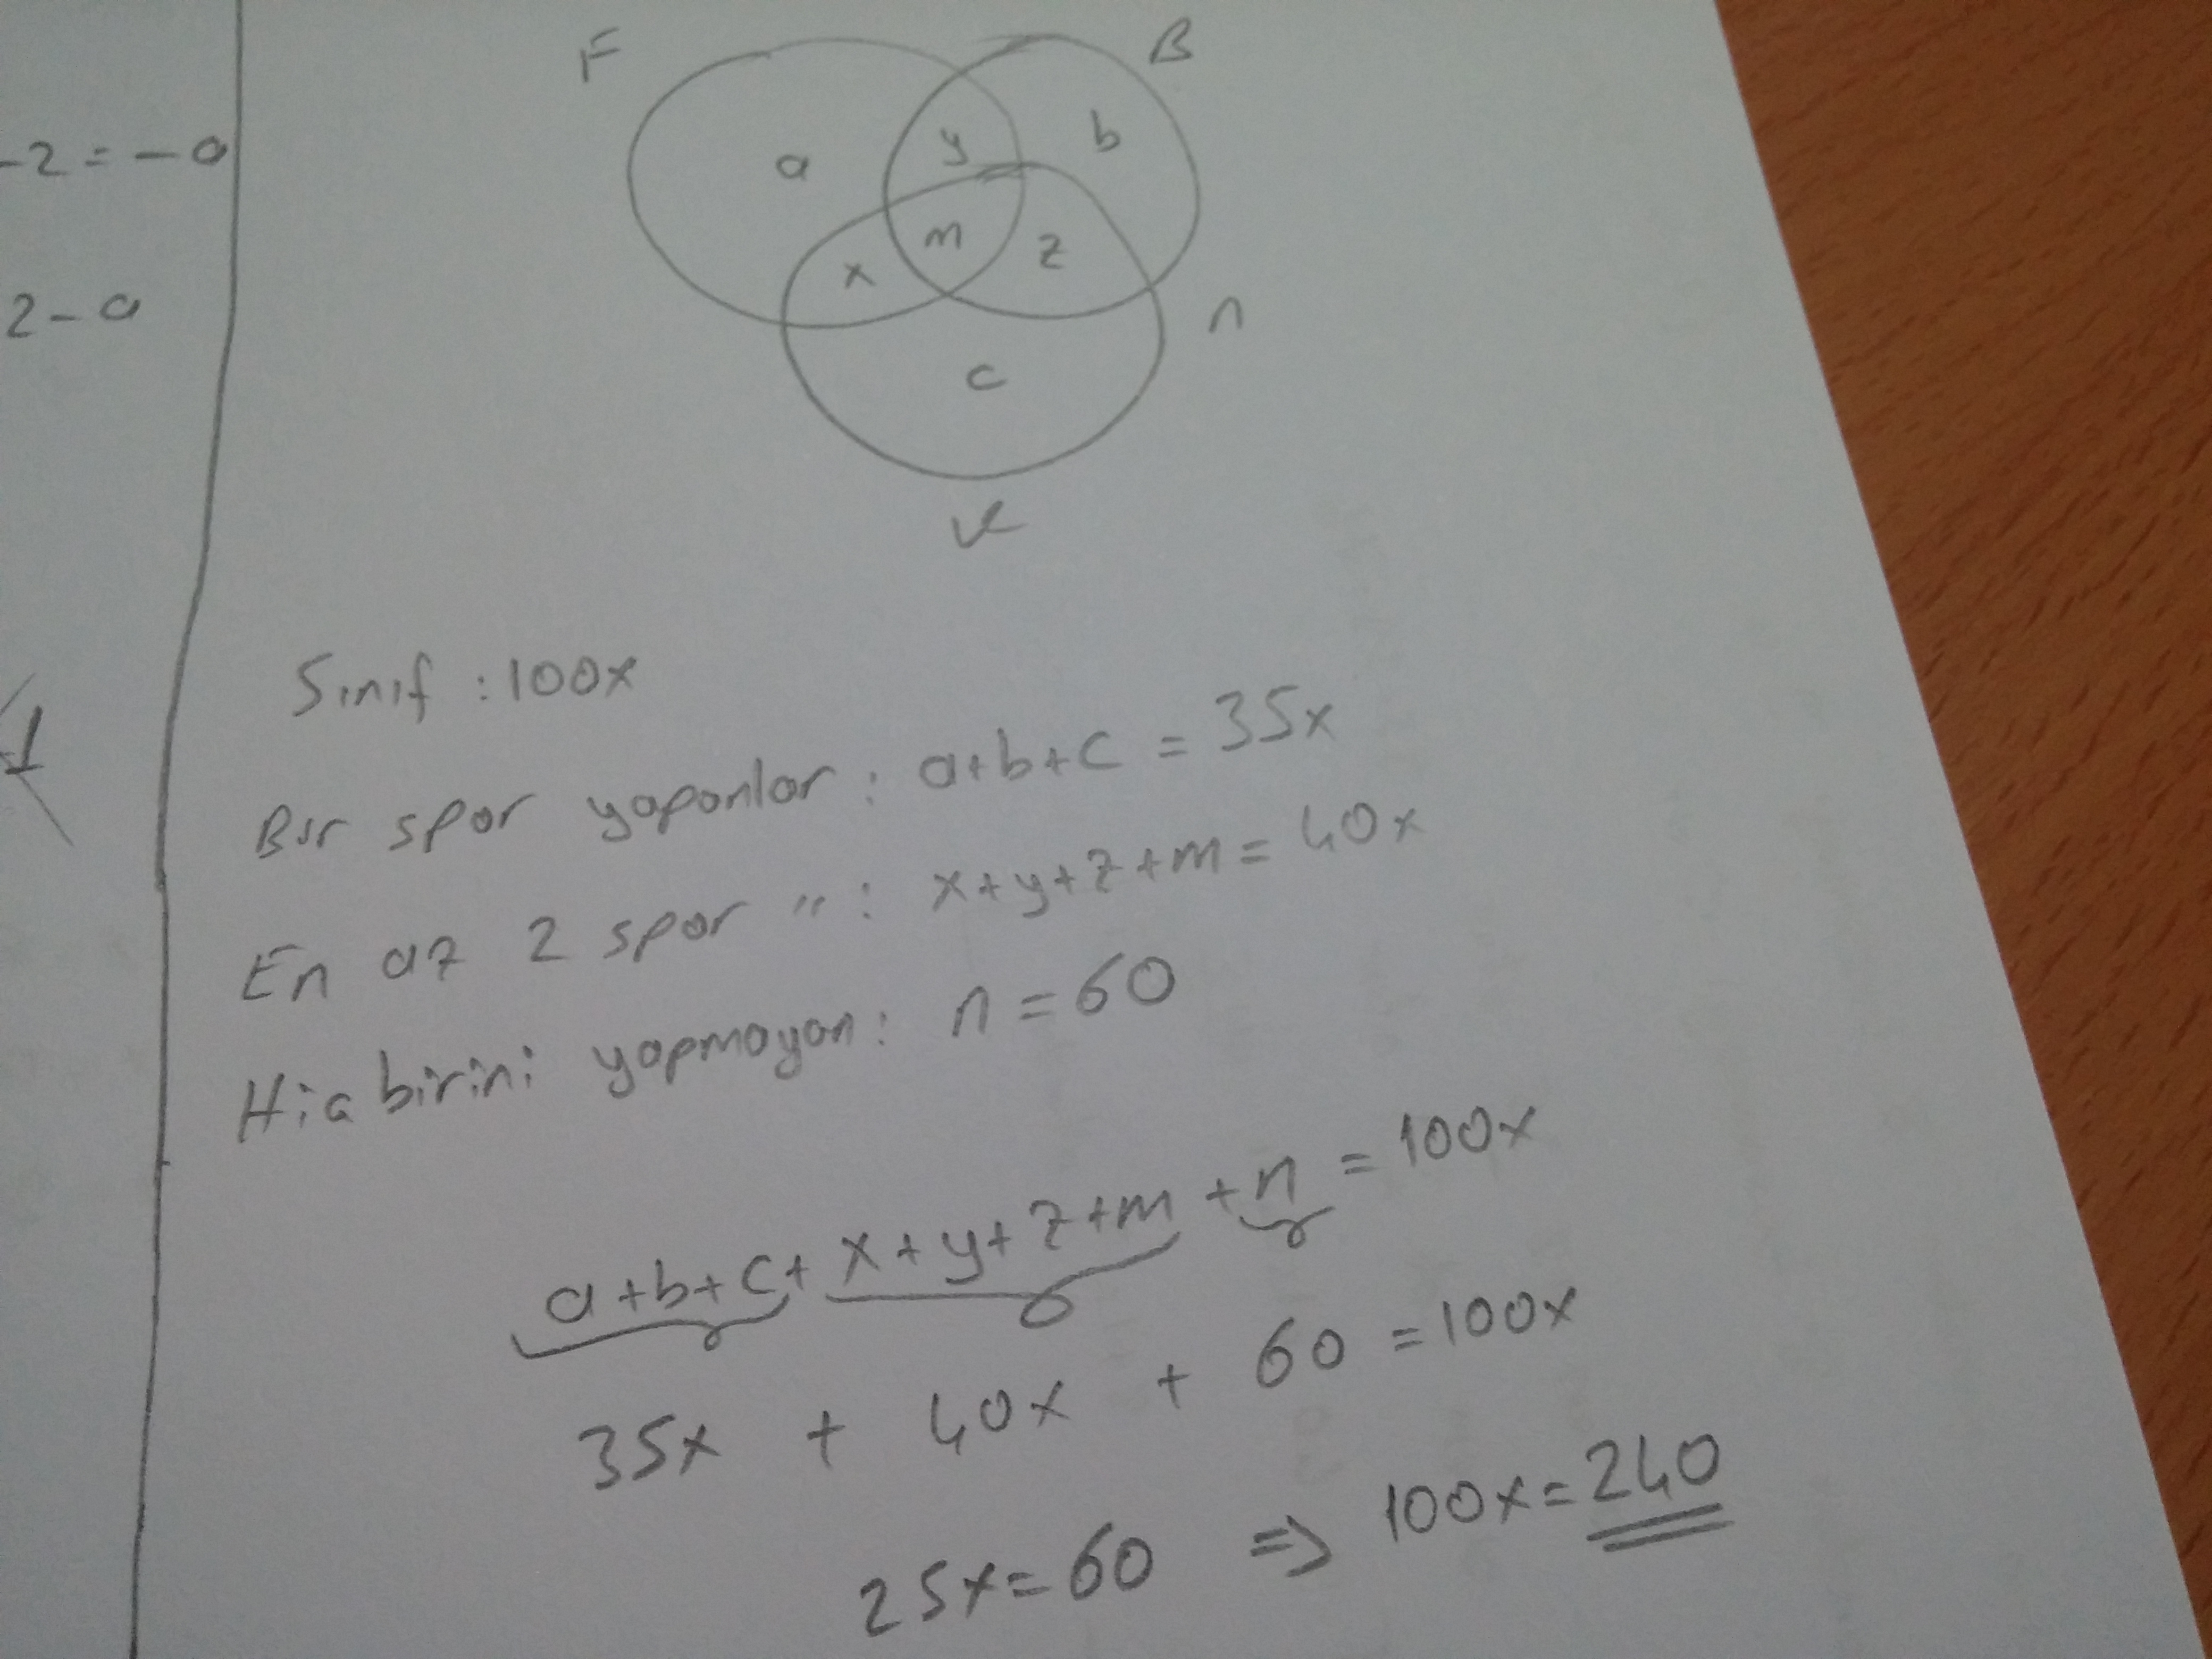 -2=-a
2-a
1
F B
a y b
x m z
n
c
K
Sınıf : 100x
Bır spor yapanlar : a+b+c = 35x
En az 2 spor " : x+y+z+m = 40x
Hiç birini yapmayan : n = 60
a+b+c+x+y+z+m+n = 100x
35x + 40x + 60 = 100x
25x=60 => 100x=240